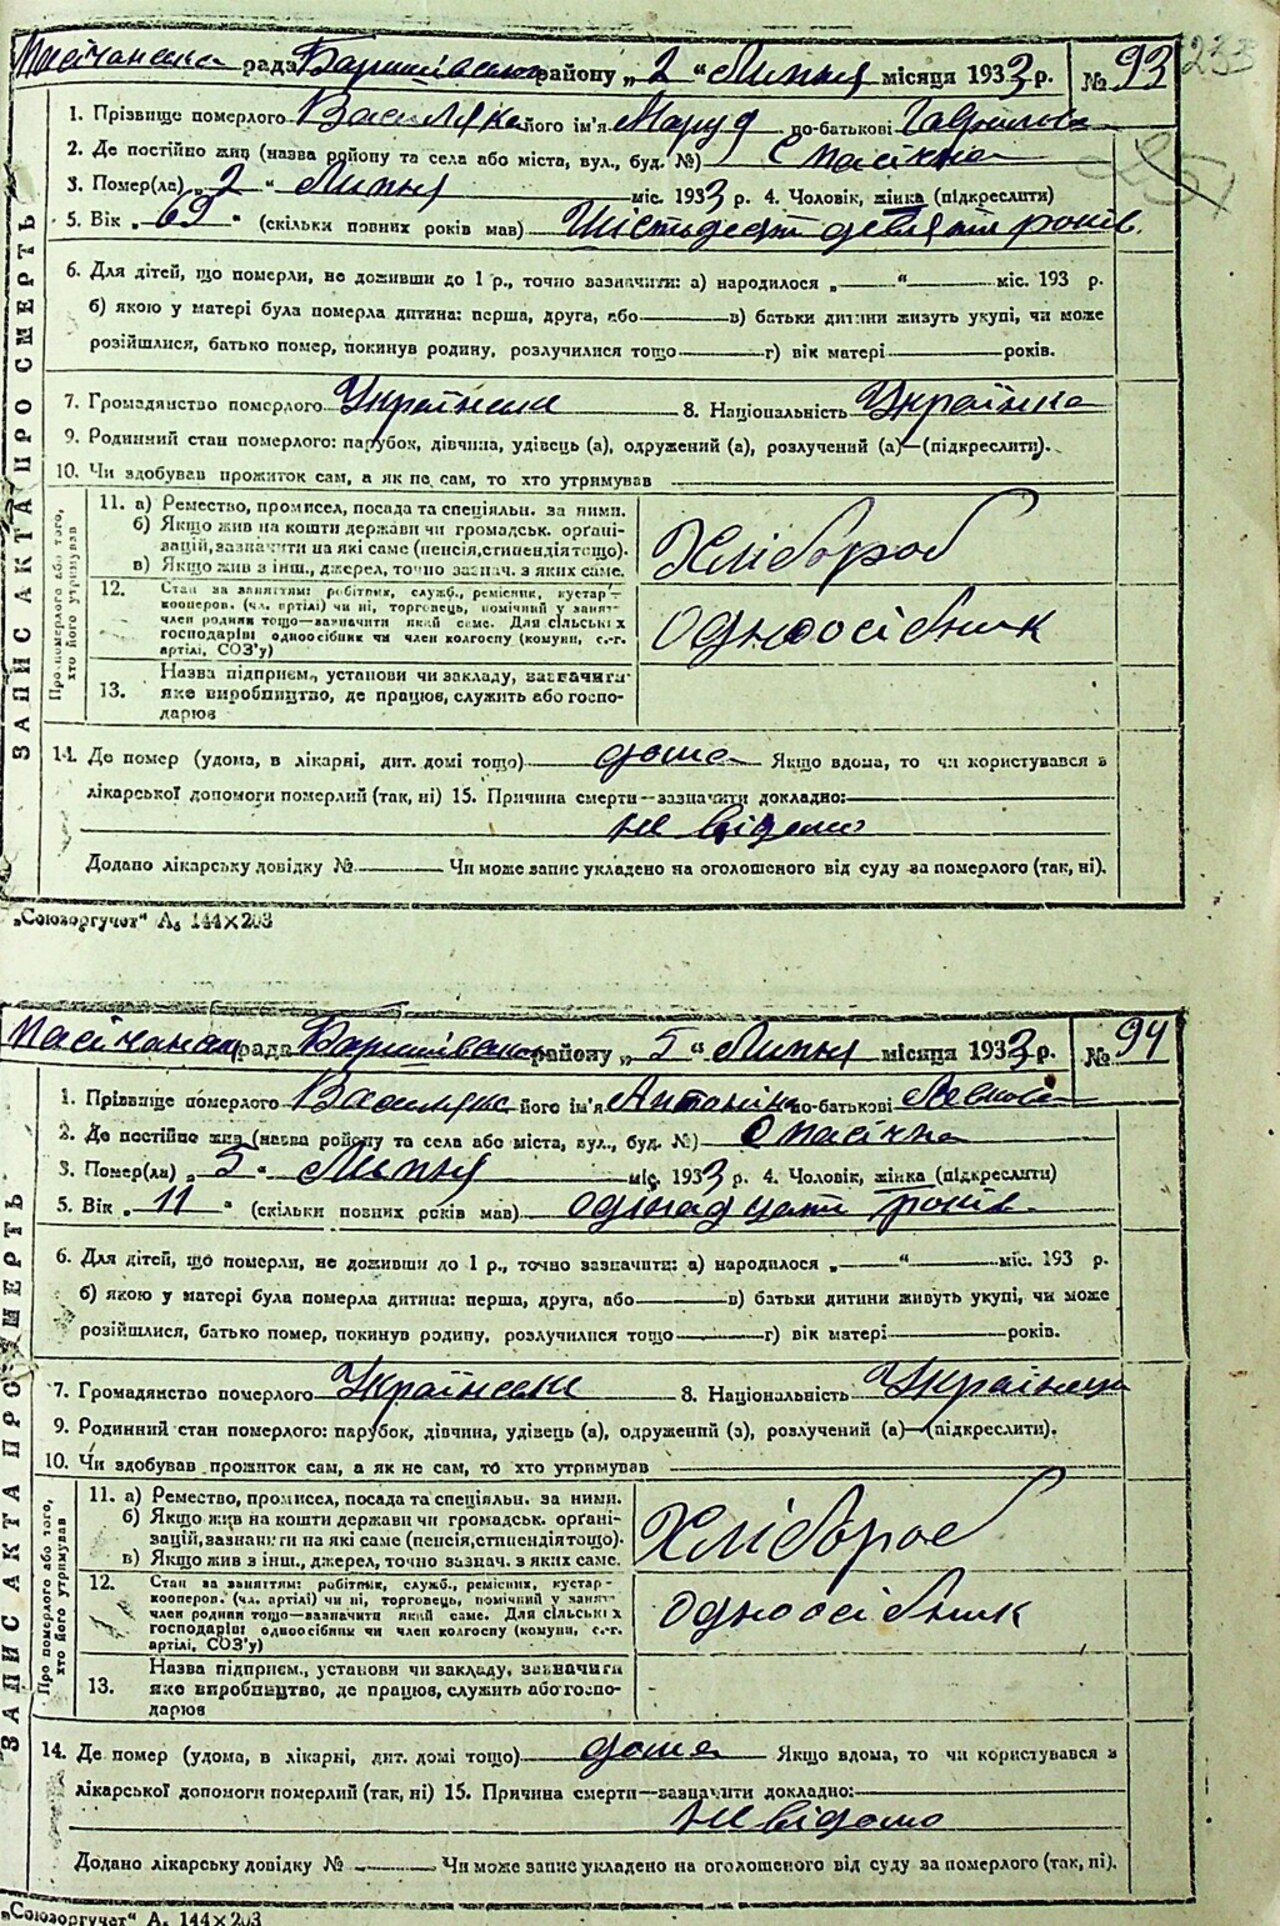 Пасічанська рада Баришівського району „ 2 “ Липня місяця 1933 р. № 93
233
1. Прізвище померлого Василяка його ім'я Маруд по-батькові Гаврилова
2. Де постійно жив (назва району та села або міста, вул., буд. №) с Пасічна
3. Помер(ла) „ 2 “ Липня міс. 1933 р. 4. Чоловік, жінка (підкреслити)
5. Вік „ 69 “ (скільки повних років мав) Шістьдесят девять років.
6. Для дітей, що померли, не доживши до 1 р., точно зазначити: а) народилося „ “ міс. 193 р.
б) якою у матері була померла дитина: перша, друга, або в) батьки дитини живуть укупі, чи може
розійшлися, батько помер, покинув родину, розлучилися тощо г) вік матері років.
7. Громадянство померлого Українське 8. Національність Українка
9. Родинний стан померлого: парубок, дівчина, удівець (а), одружений (а), розлучений (а)—(підкреслити).
10. Чи здобував прожиток сам, а як не сам, то хто утримував
ЗАПИС АКТА ПРО СМЕРТЬ
Про померлого або того, хто його утримував
11. а) Ремество, промисел, посада та спеціяльн. за ними.
б) Якщо жив на кошти держави чи громадськ. орґані-
зацій, зазначити на які саме (пенсія, стипендія тощо).
в) Якщо жив з інш., джерел, точно зазнач. з яких саме.
Хлібороб
12. Стан за заняттям: робітник, служб., ремісник, кустар-
кооперов. (чл. артілі) чи ні, торговець, помічний у занят-
член родини тощо—зазначити який саме. Для сільських
господарів: одноосібник чи член колгоспу (комуни, с.-г.
артілі, СОЗ'у)
Одноосібник
13. Назва підприєм., установи чи закладу, зазначити
яке виробництво, де працює, служить або госпо-
дарює
14. Де помер (удома, в лікарні, дит. домі тощо) дома Якщо вдома, то чи користувався з
лікарської допомоги померлий (так, ні) 15. Причина смерти—зазначити докладно:
не відомо
Додано лікарську довідку № Чи може запис укладено на оголошеного від суду за померлого (так, ні).
„Союзоргучет“ А₅ 144×203
Пасічанська рада Баришівського району „ 5 “ Липня місяця 1933 р. № 94
1. Прізвище померлого Василяка його ім'я Антоніна по-батькові
2. Де постійно жив (назва району та села або міста, вул., буд. №) с Пасічна
3. Помер(ла) „ 5 “ Липня міс. 1933 р. 4. Чоловік, жінка (підкреслити)
5. Вік „ 11 “ (скільки повних років мав) одинадцать років
6. Для дітей, що померли, не доживши до 1 р., точно зазначити: а) народилося „ “ міс. 193 р.
б) якою у матері була померла дитина: перша, друга, або в) батьки дитини живуть укупі, чи може
розійшлися, батько помер, покинув родину, розлучилися тощо г) вік матері років.
7. Громадянство померлого Українське 8. Національність
9. Родинний стан померлого: парубок, дівчина, удівець (а), одружений (а), розлучений (а)—(підкреслити).
10. Чи здобував прожиток сам, а як не сам, то хто утримував
ЗАПИС АКТА ПРО СМЕРТЬ
Про померлого або того, хто його утримував
11. а) Ремество, промисел, посада та спеціяльн. за ними.
б) Якщо жив на кошти держави чи громадськ. орґані-
зацій, зазначити на які саме (пенсія, стипендія тощо).
в) Якщо жив з інш., джерел, точно зазнач. з яких саме.
Хлібороб
12. Стан за заняттям: робітник, служб., ремісник, кустар-
кооперов. (чл. артілі) чи ні, торговець, помічний у занят-
член родини тощо—зазначити який саме. Для сільських
господарів: одноосібник чи член колгоспу (комуни, с.-г.
артілі, СОЗ'у)
Одноосібник
13. Назва підприєм., установи чи закладу, зазначити
яке виробництво, де працює, служить або госпо-
дарює
14. Де помер (удома, в лікарні, дит. домі тощо) дома Якщо вдома, то чи користувався з
лікарської допомоги померлий (так, ні) 15. Причина смерти—зазначити докладно:
не відомо
Додано лікарську довідку № Чи може запис укладено на оголошеного від суду за померлого (так, ні).
„Союзоргучет“ А₅ 144×203